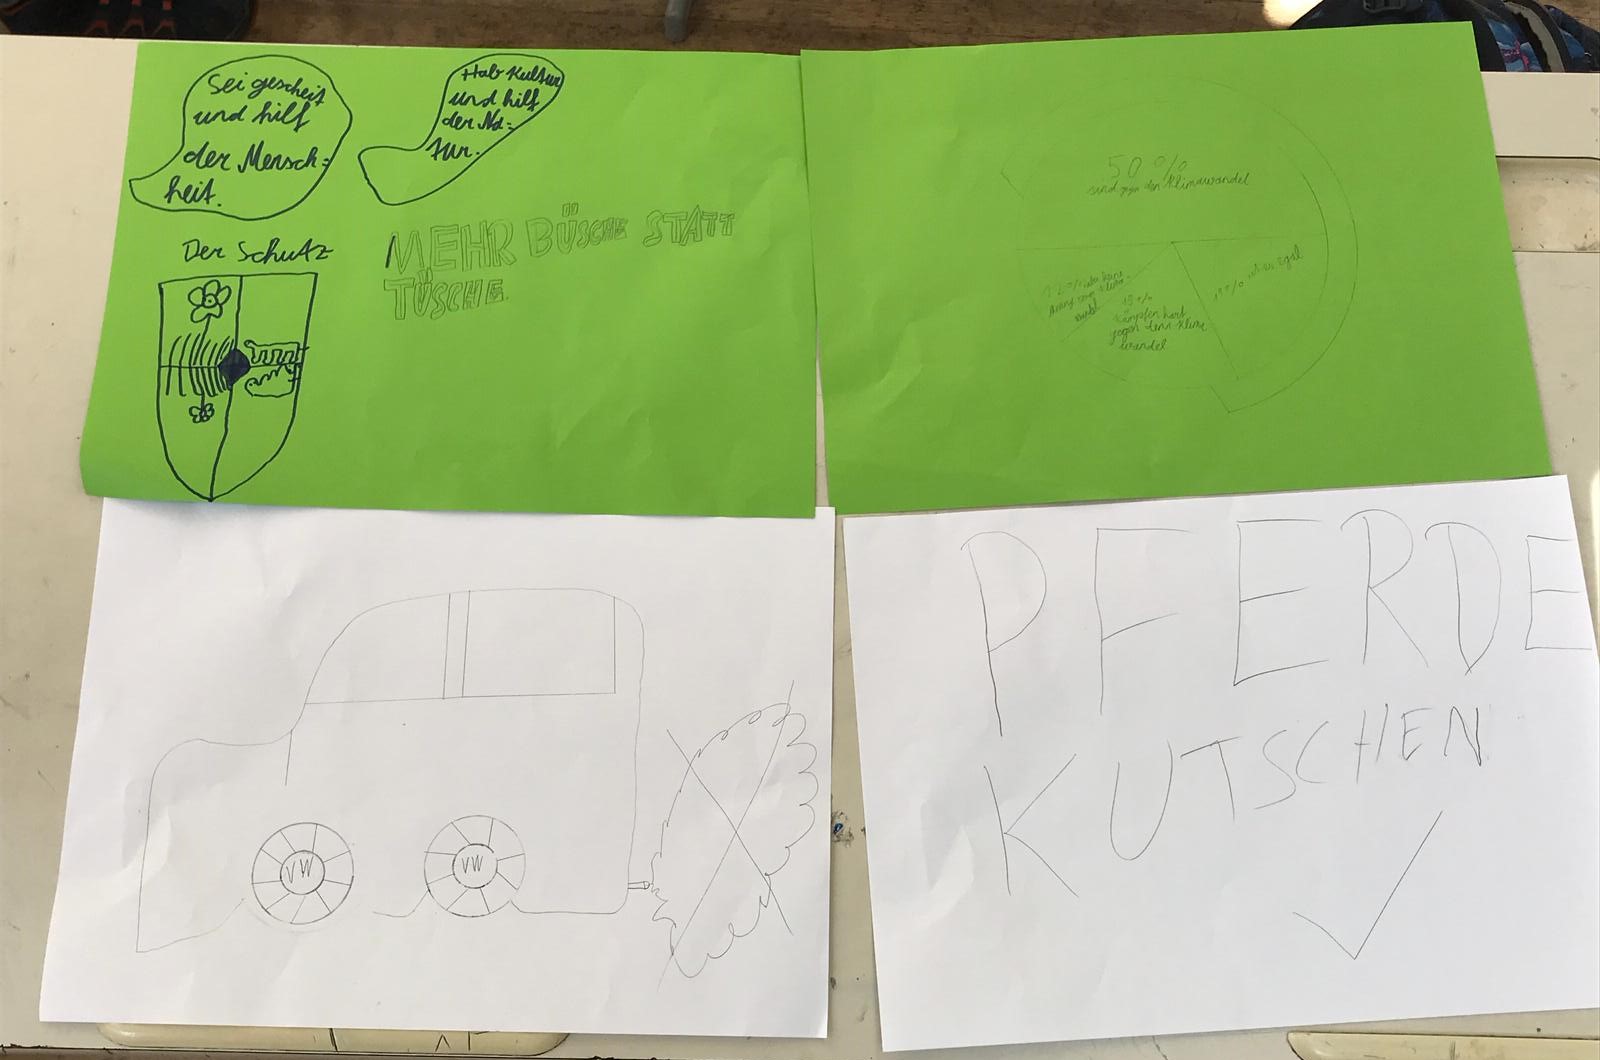 Sei gescheit
und hilf
der Mensch=
heit.
Hab Kultur
und hilf
der Na=
tur.
Der Schutz
MEHR BÜSCHE STATT
TÜSCHE.
50 %
sind gegen den Klimawandel
19 % ist es egal
19 %
kämpfen hart
gegen denn Klima
wandel
VW
VW
PFERDE
KUTSCHEN